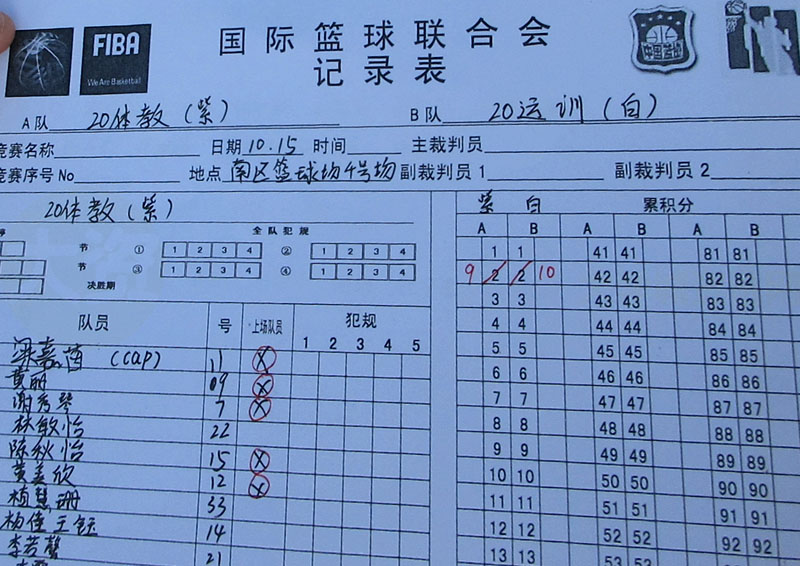 FIBA
We Are Basketball
国际篮球联合会
记录表
中国篮协
A 队 20体教(紫) B 队 20运训(白)
竞赛名称 日期 10.15 时间 主裁判员
竞赛序号 No 地点 南区篮球场4号场 副裁判员 1 副裁判员 2
20体教(紫)
全 队 犯 规
节 ① 1 2 3 4 ② 1 2 3 4
节 ③ 1 2 3 4 ④ 1 2 3 4
决胜期
队员 号 上场队员 犯规
1 2 3 4 5
梁嘉茵 (cap) 11
黄丽 09
谢秀琴 7
林敏怡 22
陈秋怡 15
黄美欣 12
植慧珊 33
杨佳王钰 14
李若馨 21
紫 白 累积分
A B A B A B
1 1 41 41 81 81
9 2 2 10 42 42 82 82
3 3 43 43 83 83
4 4 44 44 84 84
5 5 45 45 85 85
6 6 46 46 86 86
7 7 47 47 87 87
8 8 48 48 88 88
9 9 49 49 89 89
10 10 50 50 90 90
11 11 51 51 91 91
12 12 52 52 92 92
13 13 53 53